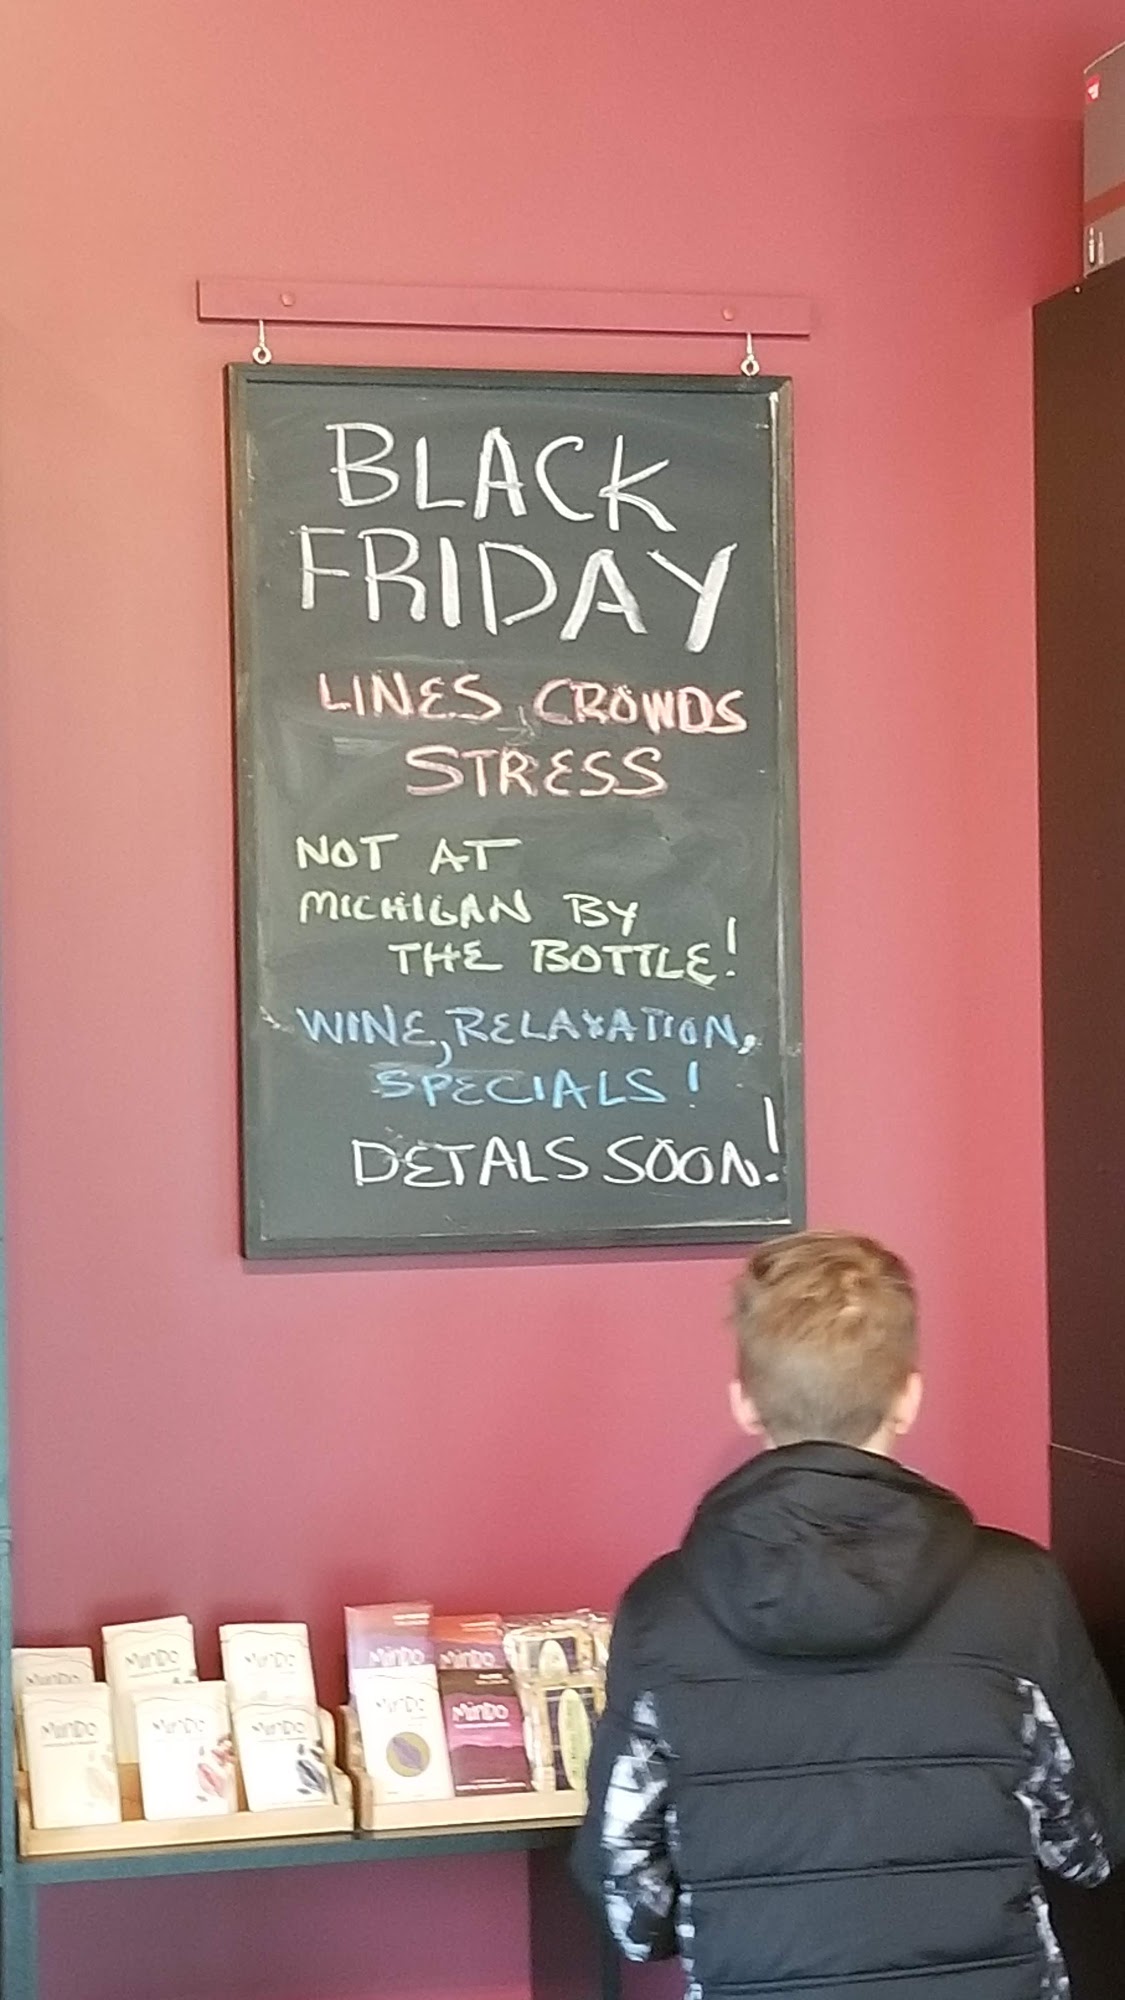 BLACK
FRIDAY
LINES, CROWDS
STRESS
NOT AT
MICHIGAN BY
THE BOTTLE!
WINE, RELAXATION,
SPECIALS!
DETALS SOON!
MINDO
MINDO
MINDO
MINDO
MINDO
MINDO
MINDO
MINDO
MINDO
MINDO